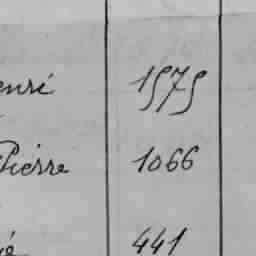 enri 1575
Pierre 1066
é 441